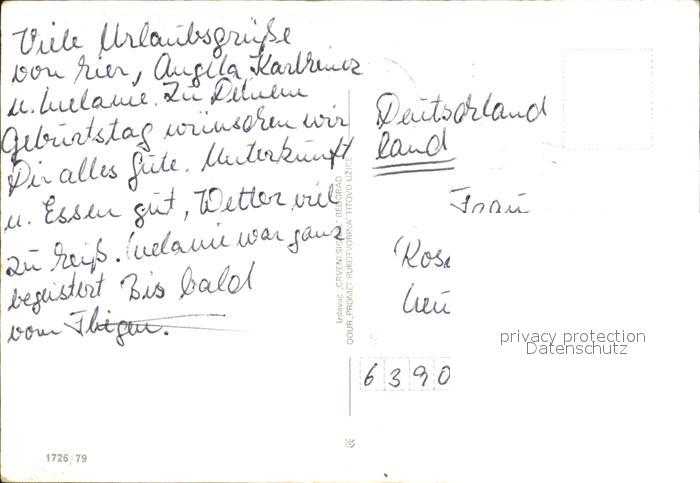 Viele Urlaubsgrüße
von hier, Angela Karlheinz
u. Melanie. Zu Deinem
Geburtstag wünschen wir
Dir alles Gute. Unterkunft
u. Essen gut, Wetter viel
zu heiß. Melanie war ganz
begeistert Bis bald
vom
Deutschland
land
Frau
6390
privacy protection
Datenschutz
Izdavač „CRVENI SIGNAL“ BEOGRAD
OOUR „PROMET RUKOTVORINA“ TITOVO UŽICE
1726/79